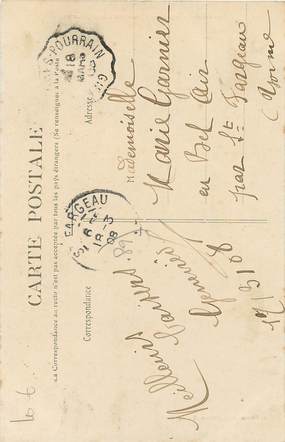 CARTE POSTALE
La Correspondance au recto n'est pas acceptée par tous les pays étrangers (Se renseigner à la Poste)
Correspondance
Adresse
Meilleurs
baisers
17/3/08
Mademoiselle
Marie Garnier
en Bel Air
par St Fargeau
(Yonne)
POURRAIN
ST FARGEAU
89